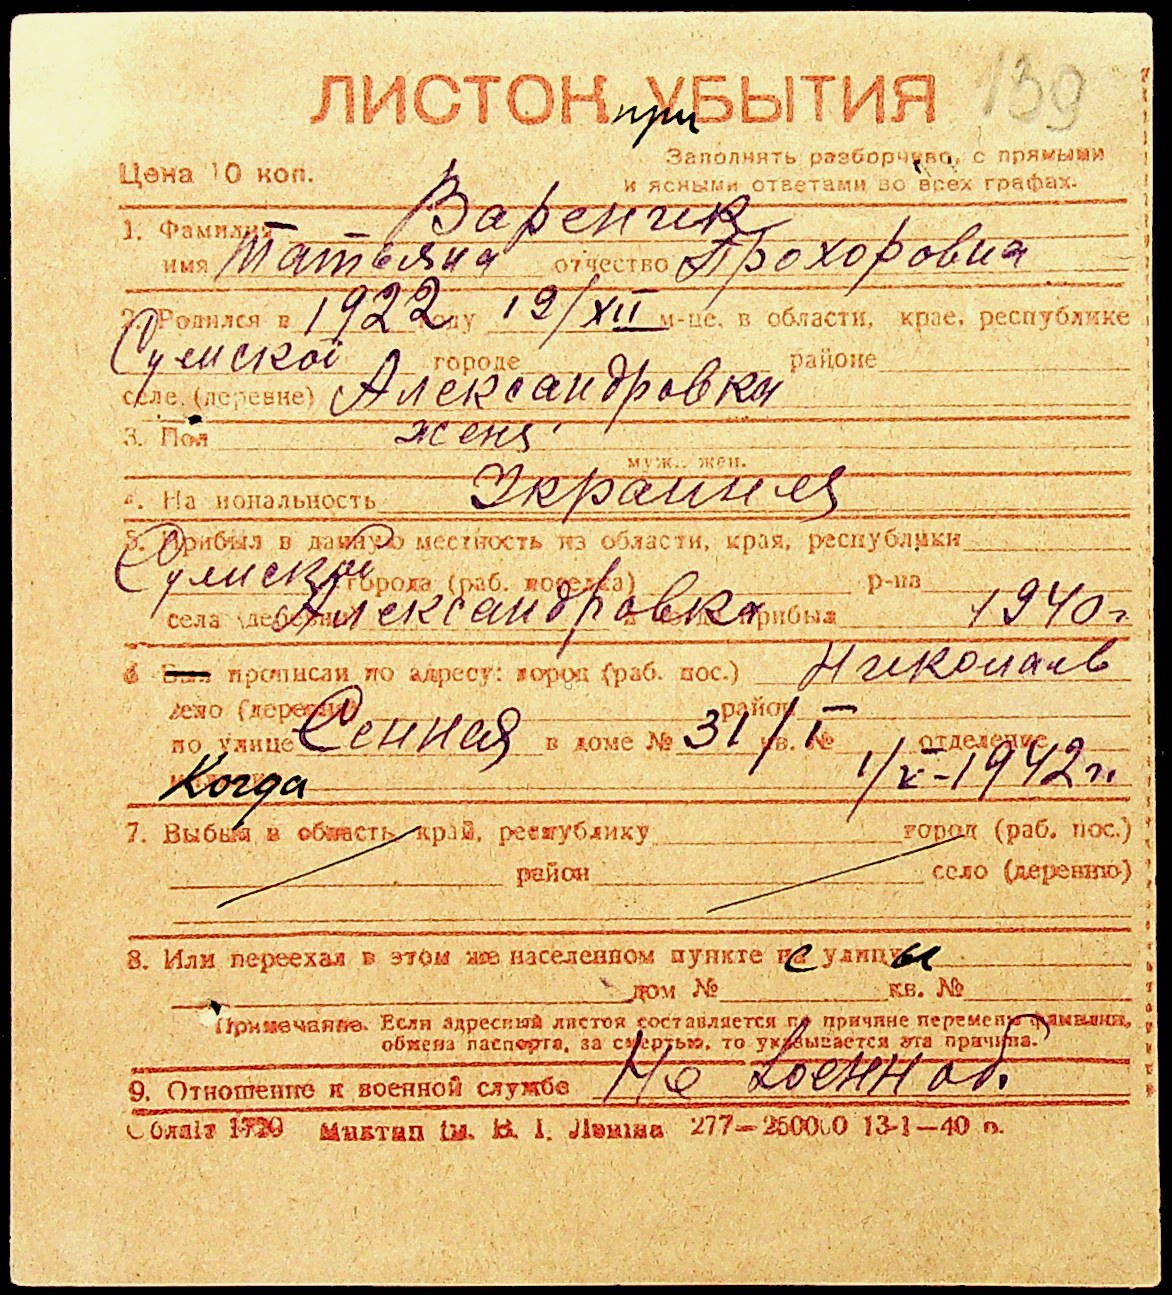 139
ЛИСТОК при УБЫТИЯ
Цена 10 коп.
Заполнять разборчиво, с прямыми
и ясными ответами во всех графах.
1. Фамилия Варенник
имя Татьяна отчество Прохоровна
2. Родился в 1922 году 19/XII м-це, в области, крае, республике
Сумской городе районе
селе (деревне) Александровка
3. Пол жен.
муж., жен.
4. Национальность Украиния
5. Прибыл в данную местность из области, края, республики
Сумской города (раб. поселка) р-на
села (деревни) Александровка и когда прибыл 1940 г.
6 Был прописан по адресу: город (раб. пос.) Николаев
село (деревня) район
по улице Сенная в доме № 31/1 кв. № отделение
Когда 1/V-1942 г.
7. Выбыл в область, край, республику город (раб. пос.)
район село (деревню)
8. Или переехал в этом же населенном пункте с улицы
дом № кв. №
Примечание. Если адресный листок составляется по причине перемены фамилии,
обмена паспорта, за смертью, то указывается эта причина.
9. Отношение к военной службе Не военнооб.
Облліт 1720 Миктип ім. В. І. Леніна 277—250000 13-1—40 р.